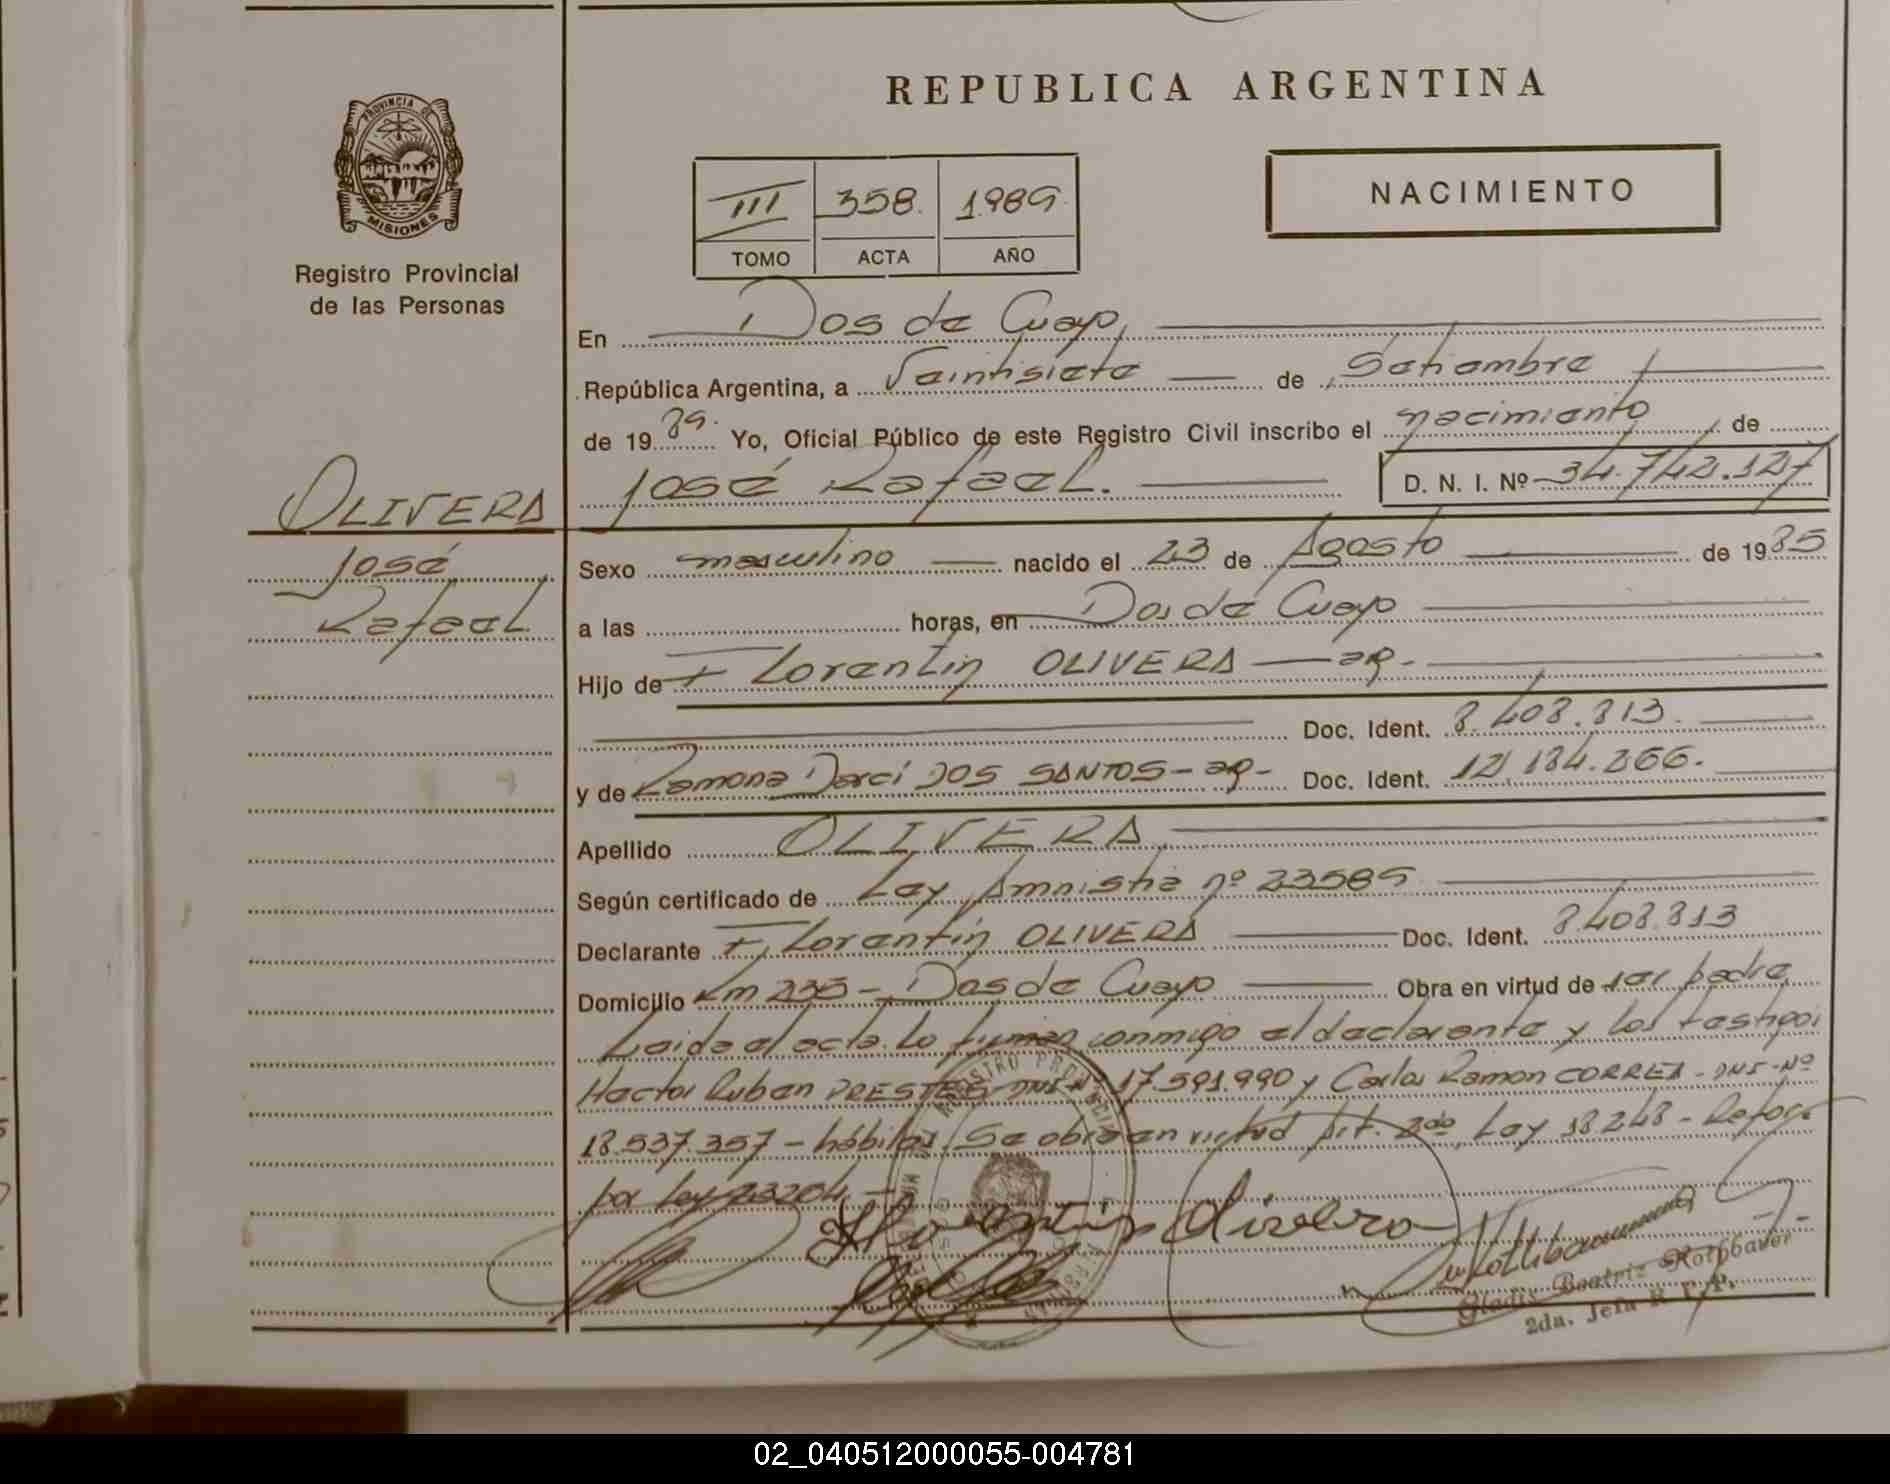 REPUBLICA ARGENTINA
PROVINCIA DE
MISIONES
Registro Provincial
de las Personas
III 358. 1.989.
TOMO ACTA AÑO
NACIMIENTO
En Dos de Mayo,
República Argentina, a Veintisiete de Setiembre
de 19 89. Yo, Oficial Público de este Registro Civil inscribo el nacimiento de
José Rafael. D. N. I. Nº 34.742.127
OLIVERA
José
Rafael
Sexo masculino nacido el 23 de Agosto de 1985
a las horas, en Dos de Mayo
Hijo de Florentin OLIVERA - ar-
Doc. Ident. 8.408.813.
y de Ramona Darci DOS SANTOS - ar- Doc. Ident. 12.184.266.
Apellido OLIVERA
Según certificado de Ley Amnistia nº 23585
Declarante Florentin OLIVERA Doc. Ident. 8.408.813
Domicilio Km 235 - Dos de Mayo Obra en virtud de ser padre
Leida el acta. Lo firman conmigo el declarante y los testigos
Hector Ruben PRESTES DNI Nº 17.591.990 y Carlos Ramon CORREA - DNI - Nº
18.537.357 - hábiles. Se obra en virtud Art. 2do Ley 18.248 -
por Ley 23204, -
Florentin Olivera
Gladis Beatriz Rothbauer
2da. Jefa R. P. P.
02_040512000055-004781